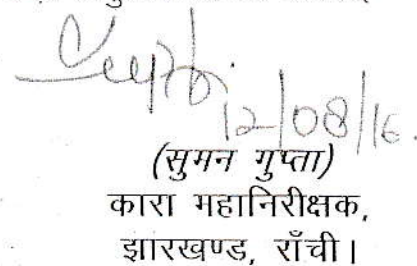 12/08/16.
(सुमन गुप्ता)
कारा महानिरीक्षक,
झारखण्ड, राँची।